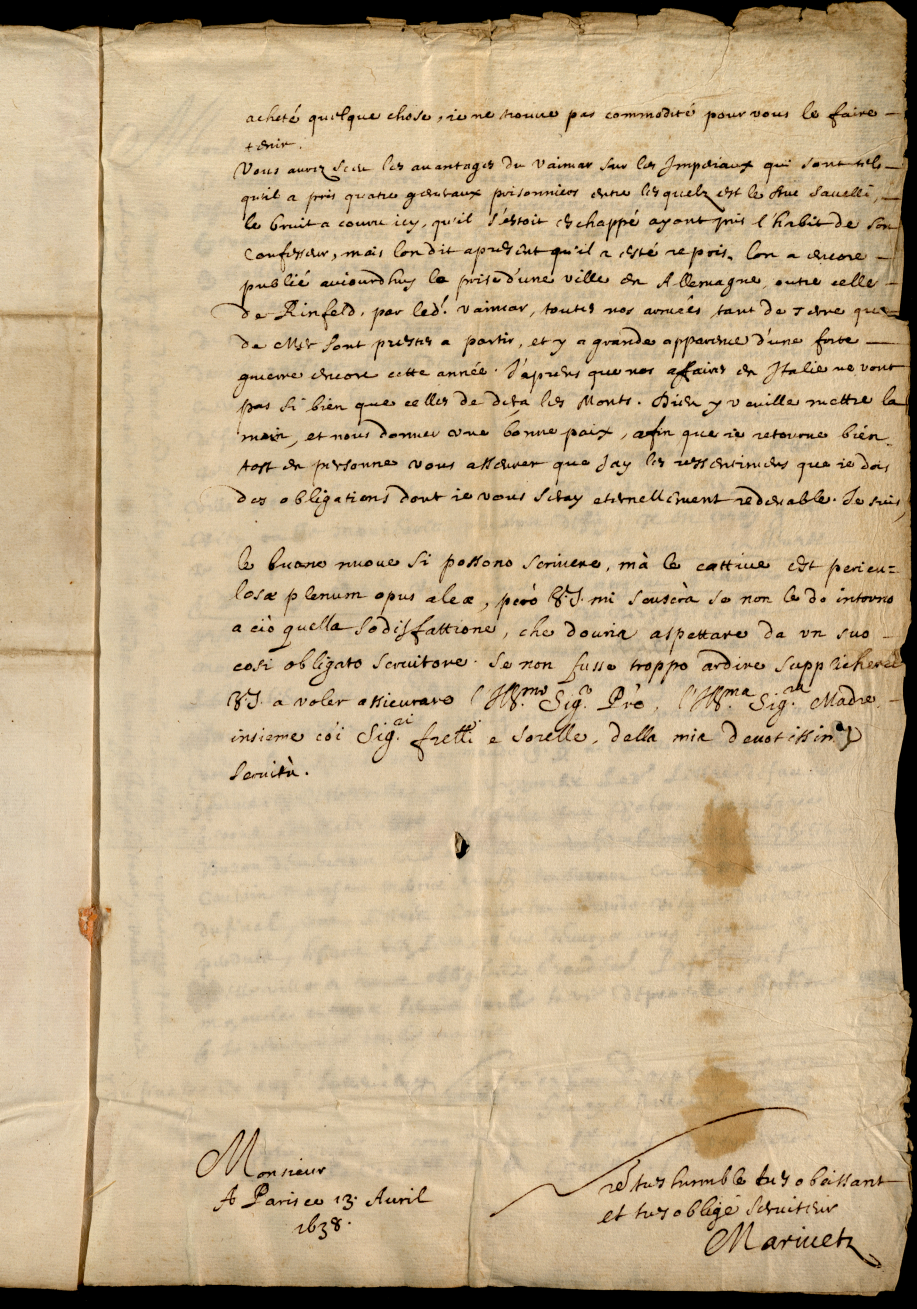 acheté quelque chose, ie ne trouue pas commodité pour vous le faire
tenir.
Vous aurez sceu les auantages du Vaimar sur les Imperiaux qui sont tels
qu'il a pris quatre generaux prisonniers entre lesquelz est le Duc Sauelli,
le bruit a couru icy, qu'il s'estoit eschappé ayant pris l'habit de son
Confesseur, mais lon dit apresent qu'il a esté repris. lon a encore
publié auiourdhuy la prise d'une ville en Allemagne, outre celle
de Rinfeld, par led. Vaimar, toutes nos armées tant de Terre que
de Mer sont prestes a partir, et y a grande apparence d'une forte
guerre encore cette année. J'aprens que nos affaires en Italie ne vont
pas si bien que celles de deça les Monts. Dieu y veuille mettre la
main, et nous donner une bonne paix, afin que ie retourne bien
tost en personne vous asseurer que J'ay les ressentimens que ie dois
des obligations dont ie vous seray eternellement redeuable. Je suis,
le buone nuoue si possono scriuere, mà le cattiue est pericu=
losæ plenum opus aleæ, però V.S. mi scuserà se non le do intorno
a ciò quella sodisfattione, che douria aspettare da vn suo
cosi obligato seruitore. Se non fusse troppo ardire supplicherei
V.S. a voler assicurare l'Ill.mo Sig.r Pre, l'Ill.ma Sig.ra Madre,
insieme coi Sig.ri fretti e sorelle, della mia deuotissima
seruitù.
Monsieur
A Paris ce 13. Auril
1638.
Vre tres humble tres obeissant
et tres obligé seruiteur
Mariuetz